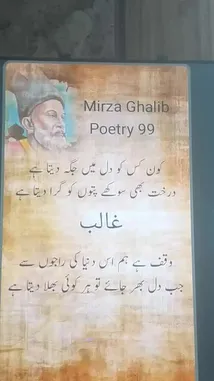 Mirza Ghalib
Poetry 99
کون کس کو دل میں جگہ دیتا ہے
درخت بھی سوکھے پتوں کو گرا دیتا ہے
غالب
وقف ہے ہم اس دنیا کی راجوں سے
جب دل بھر جائے تو ہر کوئی بھلا دیتا ہے